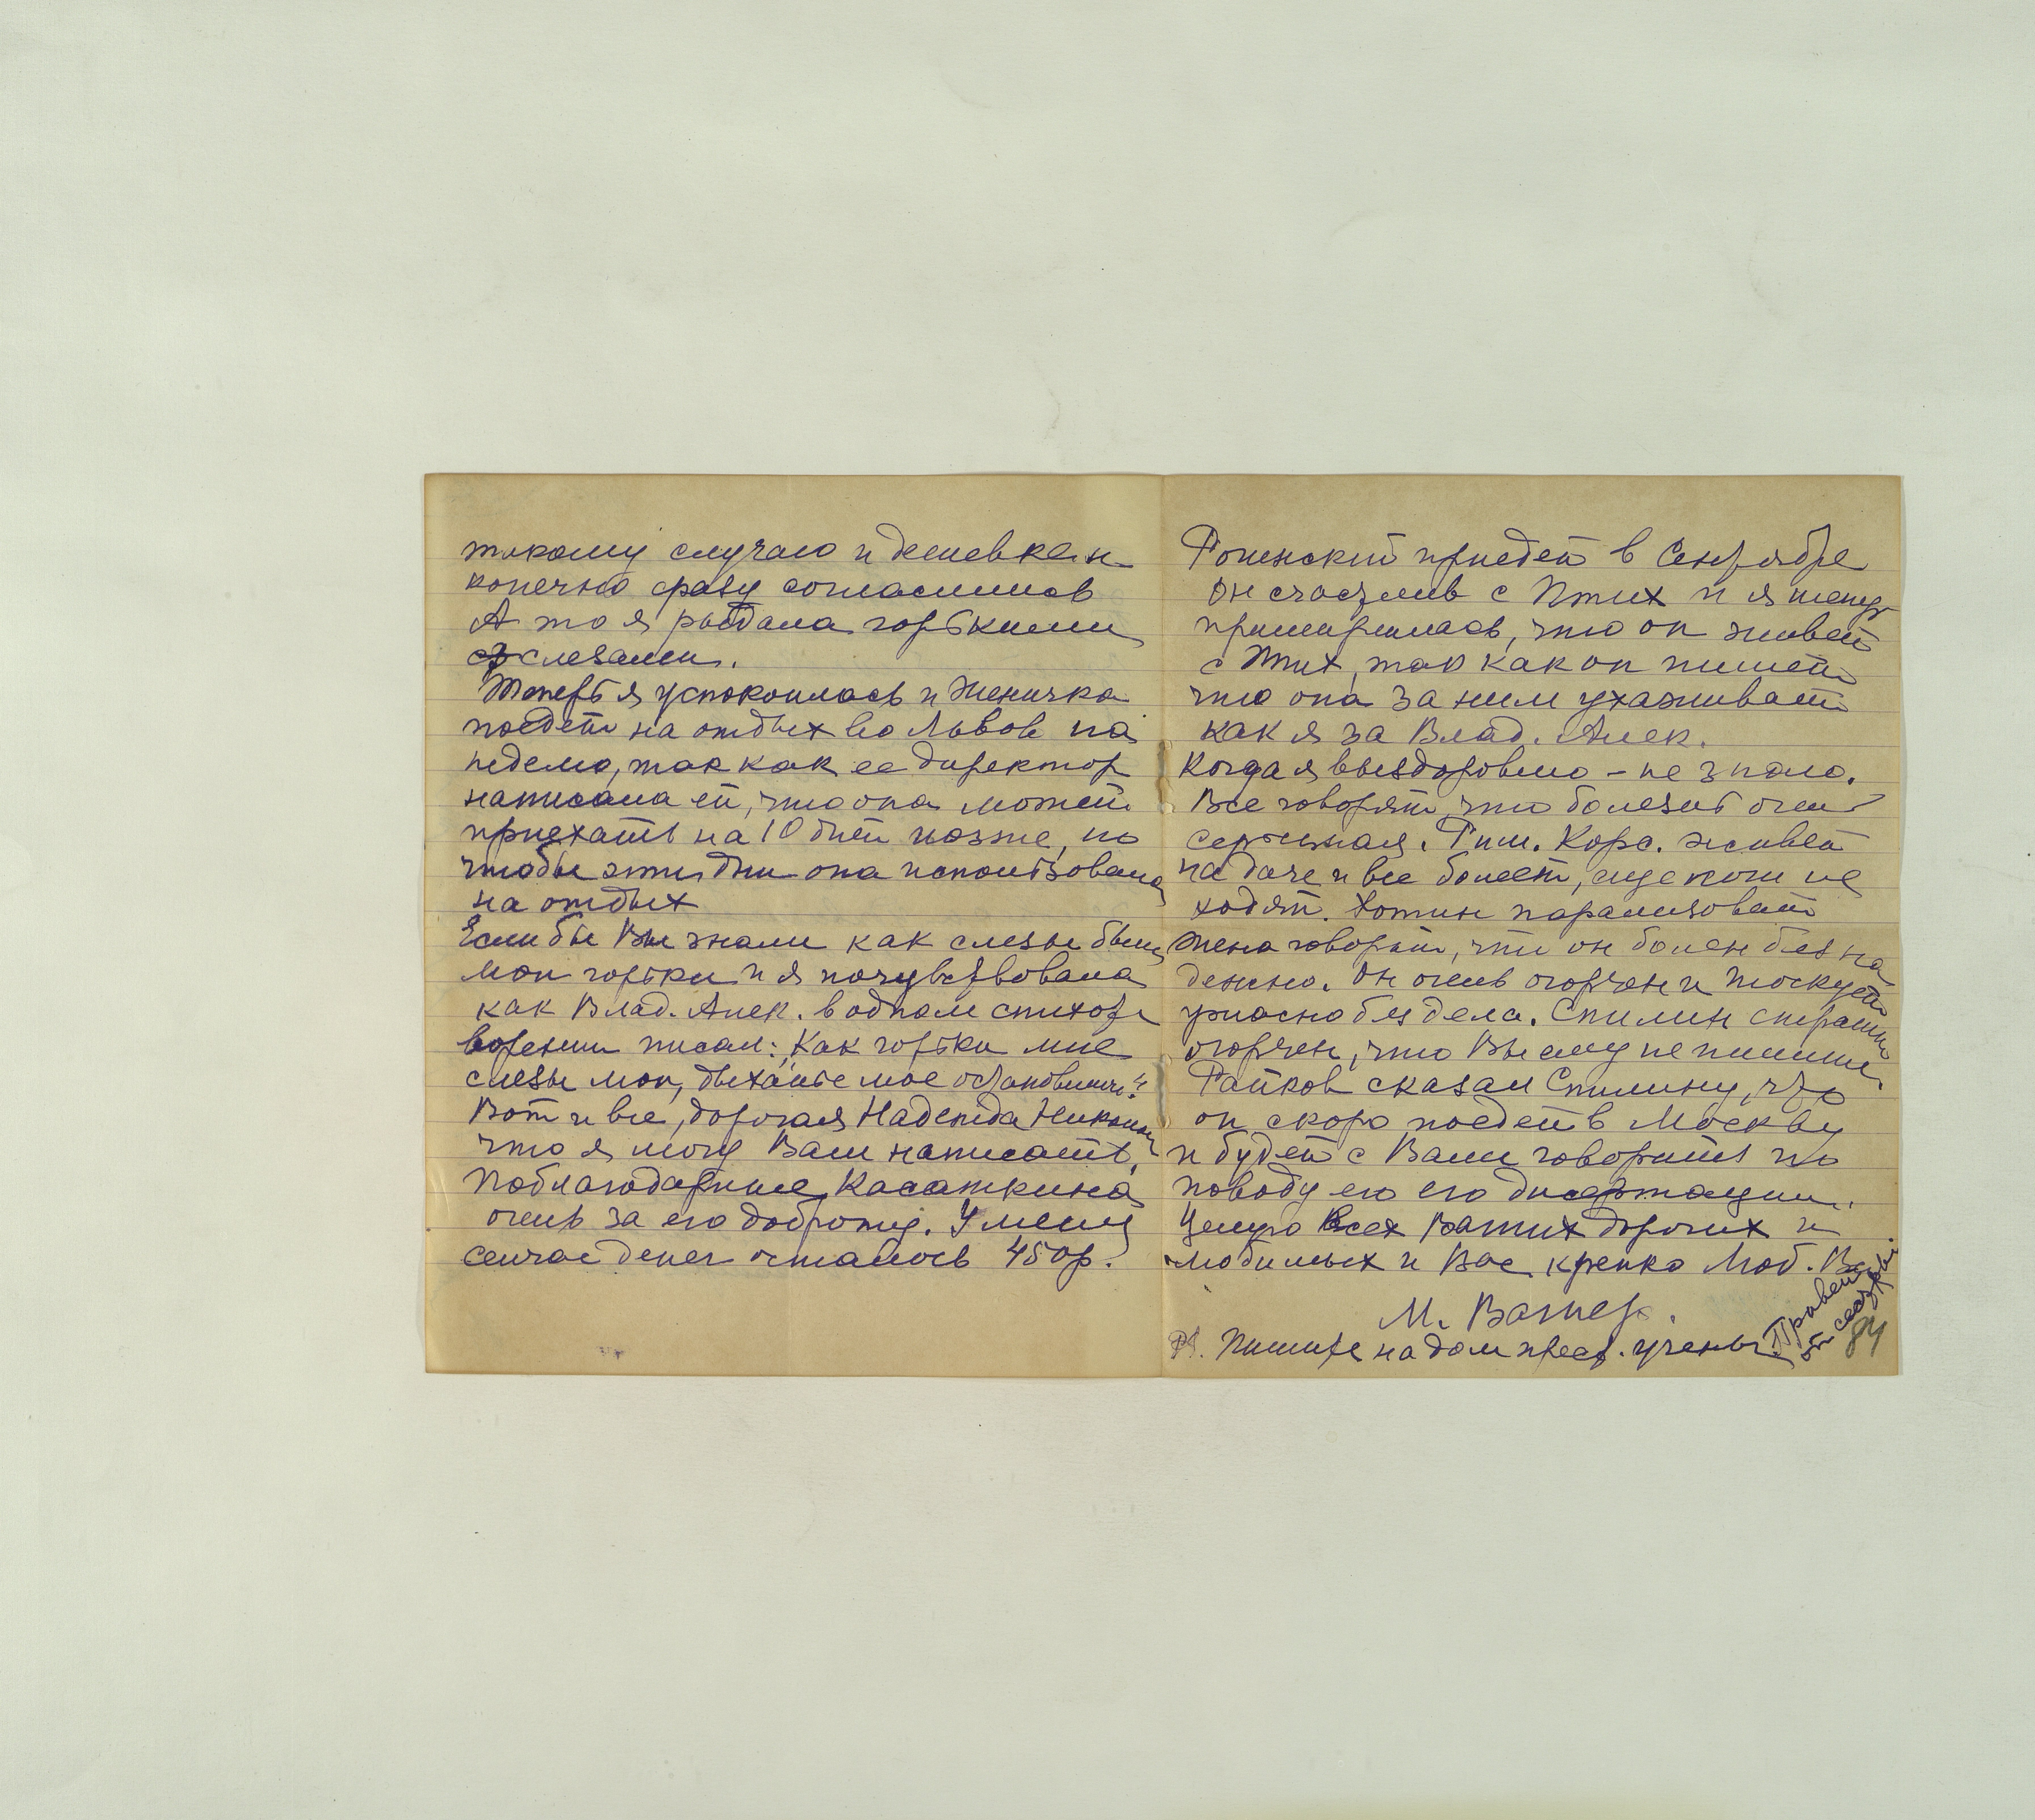 такому случаю и дешевке и
конечно сразу согласились
А то я рыдала горькими
слезами.
Теперь я успокоилась и Женичка
поедет на отдых во Львов на
неделю, так как ее директор
написала ей, что она может
приехать на 10 дней позже, но
чтобы эти дни она использовала
на отдых
Если бы Вы знали как слезы были
мои горьки и я почувствовала
как Влад. Алек. в одном стихот
ворении писал: „Как горьки мне
слезы мои, дыханье мое остановили"
Вот и все, дорогая Надежда Никол
что я могу Вам написать.
Поблагодарите Касаткина
очень за его доброту. У меня
сейчас денег осталось 450р.
приедет в Сентябре
Он счастлив с Птих и я теперь
примирилась, что он живет
с Птих, так как он пишет
что она за ним ухаживает
как я за Влад. Алек.
Когда я выздоровлю – не знаю.
Все говорят что болезнь очень
серьезная. Рим. Корс. живет
на даче и все болеет, еще ноги не
ходят. Хотин парализован
Жена говорит, что он болен без на
дежно. Он очень огорчен и тоскует
ужасно без дела. Спилин страшно
огорчен, что Вы ему не пишите.
Райков сказал Спилину, что
он скоро поедет в Москву
и будет с Вами говорить по
поводу его его дисертации.
Целую Всех Ваших дорогих и
любимых и Вас крепко Люб. Вас
М. Вагнер.
PS. Пишите на дом прест. ученых.
Привет
от сестры.
84